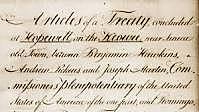 Articles of a Treaty concluded
at Hopewell on the Keowee, near Seneca
old Town, between Benjamin Hawkins,
Andrew Pickens and Joseph Martin, Com
missioners plenipotentiary of the United
States of America of the one part, and